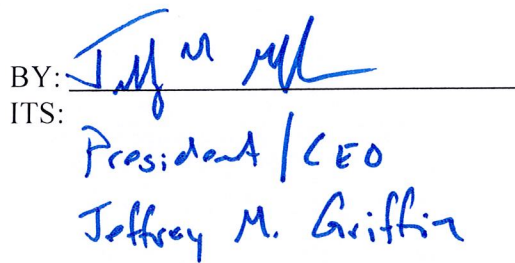 BY:
ITS:
President / CEO
Jeffrey M. Griffin